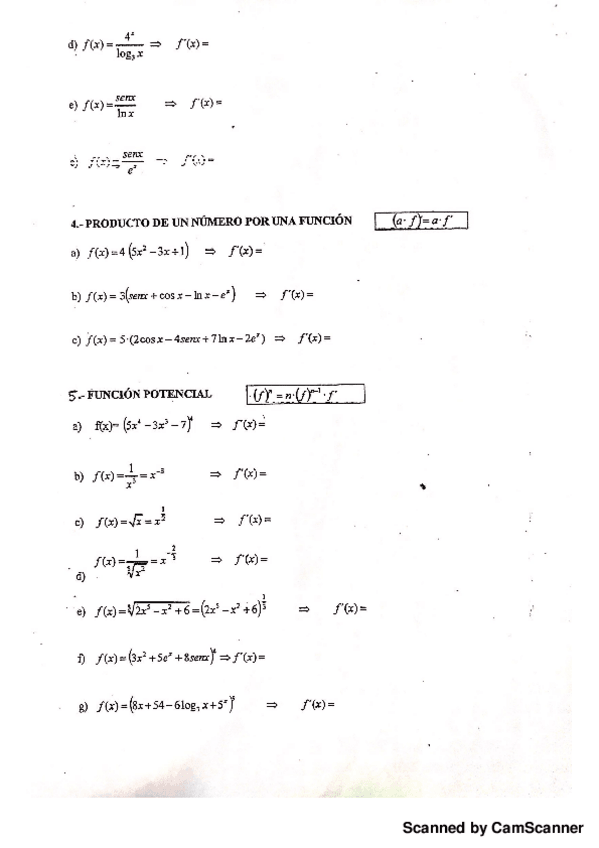 d) f(x) = 4ˣ / log₃ x ⇒ f'(x) =
e) f(x) = senx / ln x ⇒ f'(x) =
e) f(x) = senx / eˣ ⇒ f'(x) =
4.- PRODUCTO DE UN NÚMERO POR UNA FUNCIÓN (a· f)'= a· f'
a) f(x) = 4 (5x² − 3x + 1) ⇒ f'(x) =
b) f(x) = 3(senx + cos x − ln x − eˣ) ⇒ f'(x) =
c) f(x) = 5·(2cos x − 4senx + 7 ln x − 2eˣ) ⇒ f'(x) =
5.- FUNCIÓN POTENCIAL (f)ⁿ = n·(f)ⁿ⁻¹ · f'
a) f(x)= (5x⁴ − 3x³ − 7)⁴ ⇒ f'(x) =
b) f(x) = 1 / x³ = x⁻³ ⇒ f'(x) =
c) f(x) = √x = x^(1/2) ⇒ f'(x) =
d) f(x) = 1 / ⁵√x² = x^(−2/5) ⇒ f'(x) =
e) f(x) = ⁵√(2x⁵ − x² + 6) = (2x⁵ − x² + 6)^(1/5) ⇒ f'(x) =
f) f(x) = (3x² + 5eˣ + 8senx)⁴ ⇒ f'(x) =
g) f(x) = (8x + 54 − 6log₇ x + 5ˣ)⁵ ⇒ f'(x) =
Scanned by CamScanner